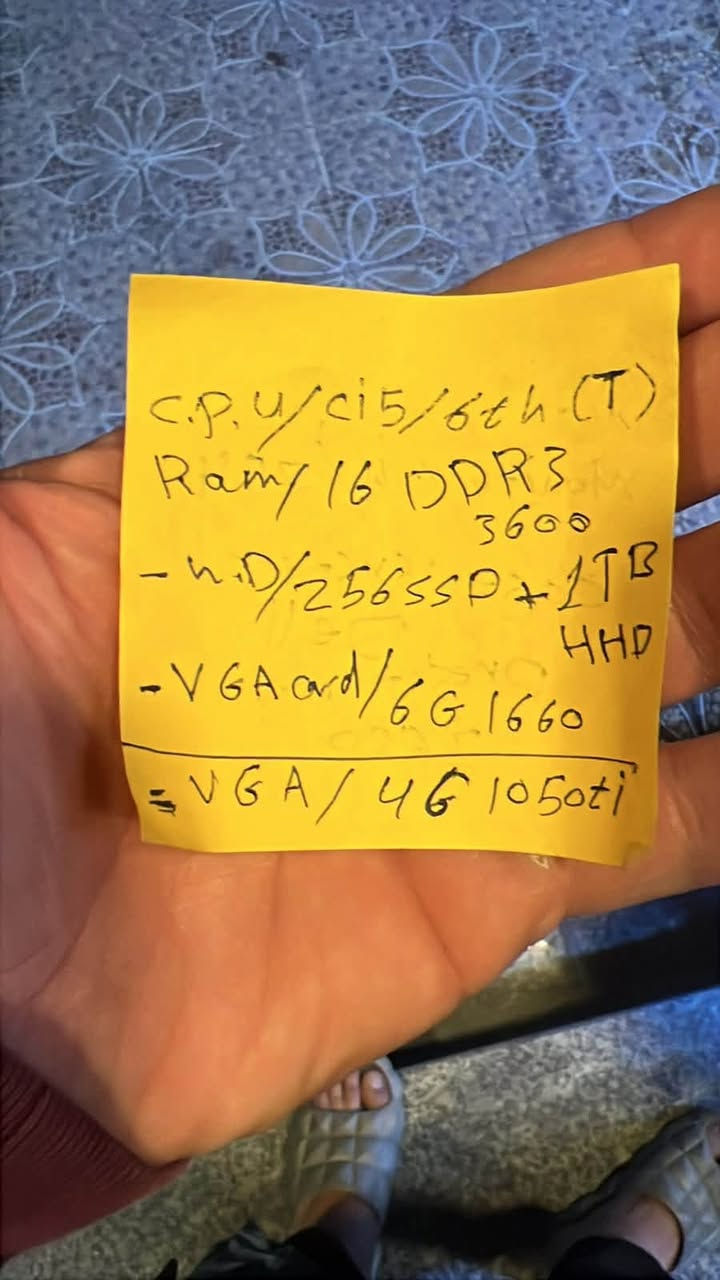 C.P.U/Ci5/6th (T)
Ram/16 DDR3
3600
- H.D/256SSD + 1TB
HHD
- VGA card/6G 1660
= VGA/4G 1050ti